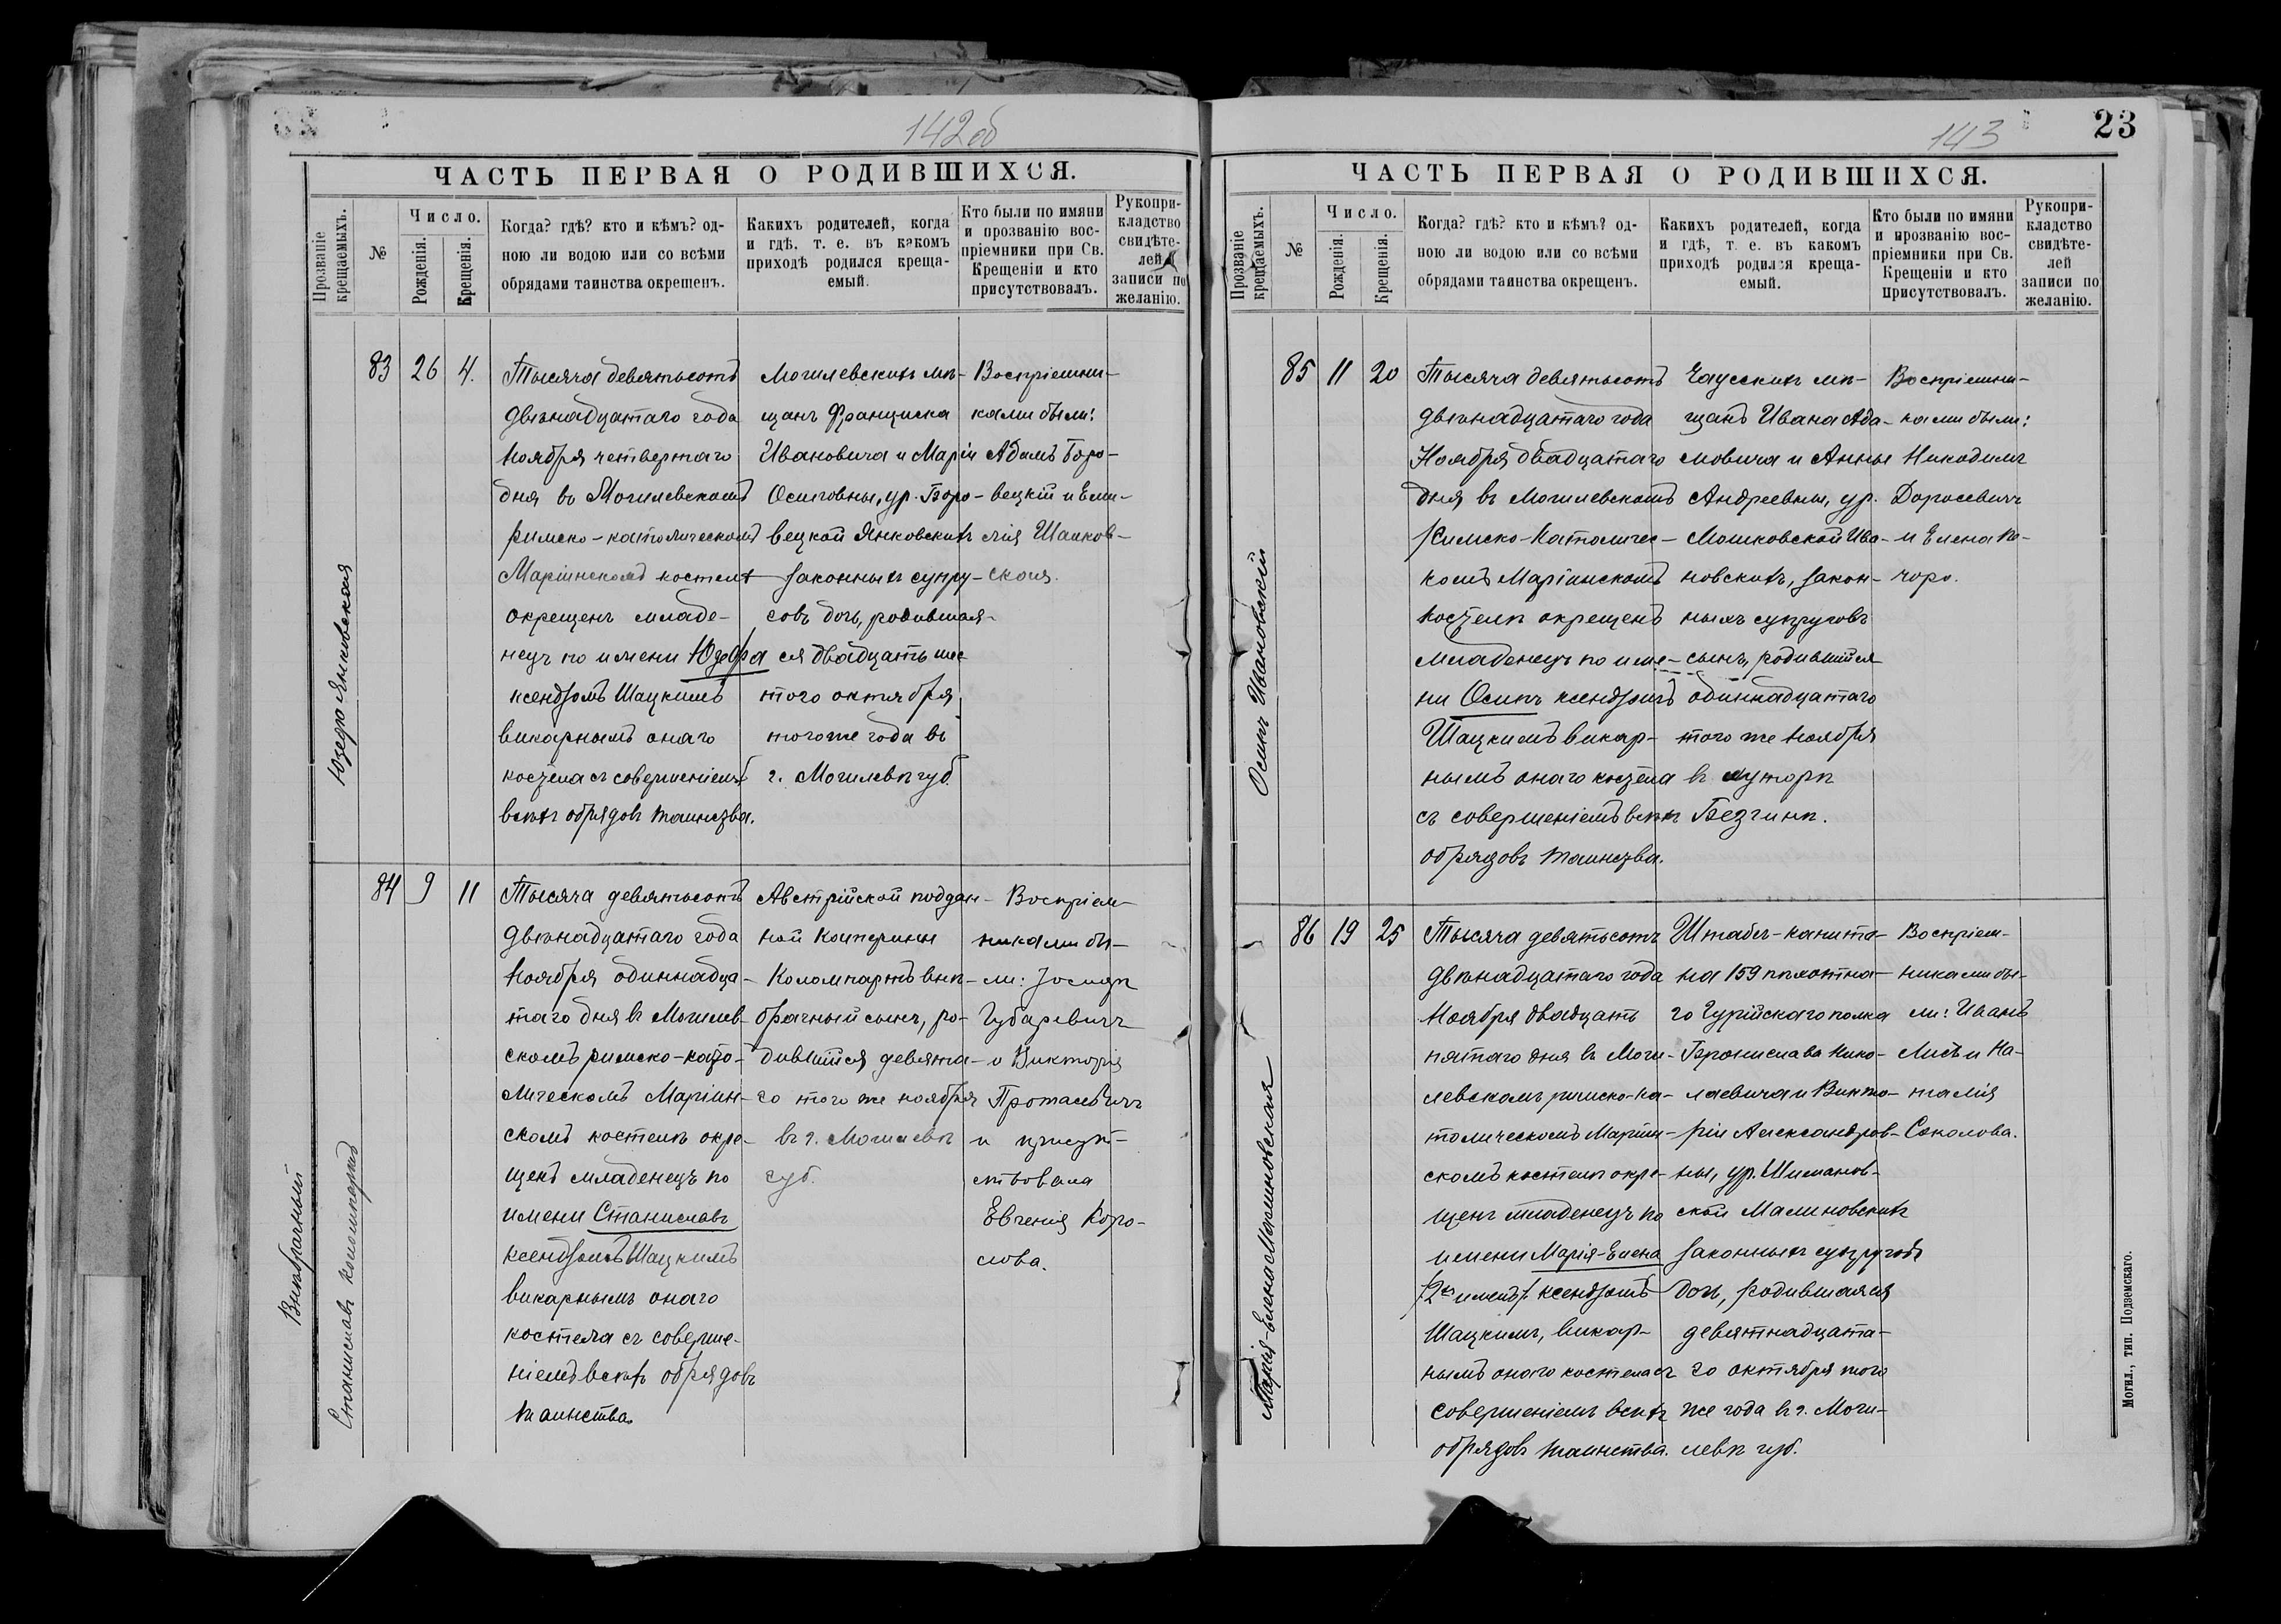 142 об
ЧАСТЬ ПЕРВАЯ О РОДИВШИХСЯ.
Прозваніе крещаемыхъ.
№
Число.
Рожденія.
Крещенія.
Когда? гдѣ? кто и кѣмъ? од-
ною ли водою или со всѣми
обрядами таинства окрещенъ.
Какихъ родителей, когда
и гдѣ. т. е. въ какомъ
приходѣ родился креща-
емый.
Кто были по имяни
и прозванію вос-
пріемники при Св.
Крещеніи и кто
присутствовалъ.
Рукопри-
кладство
свидѣте-
лей
записи по
желанію.
Юзефа Янковская
83 26 4.
Тысяча девятьсотъ
двѣнадцатаго года
Ноября четвертаго
дня въ Могилевскомъ
римско-католическомъ
Маріинскомъ костелѣ
окрещенъ младе-
нецъ по имени Юзефа
ксендзомъ Шацкимъ
викарнымъ онаго
костела съ совершеніемъ
всѣхъ обрядовъ таинства.
Могилевскихъ мѣ-
щанъ Франциска
Ивановича и Маріи
Осиповны, ур. Боро-
вецкой Янковскихъ
законныхъ супру-
говъ дочь, родившая-
ся двадцать шес-
того октября
того же года въ
г. Могилевѣ губ.
Воспріемни-
ками были:
Адамъ Боро-
вецкій и Еми-
лія Шанков-
ская.
Внѣбрачный
Станиславъ Коломпартъ
84 9 11
Тысяча девятьсотъ
двѣнадцатаго года
Ноября одиннадца-
таго дня въ Могилев-
скомъ римско-като-
лическомъ Маріин-
скомъ костелѣ окре-
щенъ младенецъ по
имени Станиславъ
ксендзомъ Шацкимъ
викарнымъ онаго
костела съ соверше-
ніемъ всѣхъ обрядовъ
таинства.
Австрійской поддан-
ной Катерины
Коломпартъ внѣ-
брачный сынъ, ро-
дившійся девята-
го того же ноября
въ г. Могилевѣ
губ.
Воспріем-
никами бы-
ли: Іосифъ
Губаревичъ
и Викторія
Протасевичъ
и присут-
ствовала
Евгенія Коро-
лова.
143
23
ЧАСТЬ ПЕРВАЯ О РОДИВШИХСЯ.
Прозваніе крещаемыхъ.
№
Число.
Рожденія.
Крещенія.
Когда? гдѣ? кто и кѣмъ? од-
ною ли водою или со всѣми
обрядами таинства окрещенъ.
Какихъ родителей, когда
и гдѣ, т. е. въ какомъ
приходѣ родился креща-
емый.
Кто были по имяни
и прозванію вос-
пріемники при Св.
Крещеніи и кто
присутствовалъ.
Рукопри-
кладство
свидѣте-
лей
записи по
желанію.
Осипъ Ивановскій
85 11 20
Тысяча девятьсотъ
двѣнадцатаго года
Ноября двадцатаго
дня въ Могилевскомъ
Римско-Католичес-
комъ Маріинскомъ
костелѣ окрещенъ
младенецъ по име-
ни Осипъ ксендзомъ
Шацкимъ викар-
нымъ онаго костела
съ совершеніемъ всѣхъ
обрядовъ таинства.
Чаусскихъ мѣ-
щанъ Ивана Ада-
мовича и Анны
Андреевны, ур.
Мошковской Ива-
новскихъ, закон-
ныхъ супруговъ
сынъ, родившійся
одиннадцатаго
того же Ноября
въ хуторѣ
Безчинѣ.
Воспріемни-
ками были:
Никодимъ
Доросевичъ
и Елена По-
чоро.
Марія-Елена Малиновская
86 19 25
Тысяча девятьсотъ
двѣнадцатаго года
Ноября двадцать
пятаго дня въ Моги-
левскомъ римско-ка-
толическомъ Маріин-
скомъ костелѣ окре-
щенъ младенецъ по
имени Марія-Елена
/2хъ именъ/ ксендзомъ
Шацкимъ, викар-
нымъ онаго костела съ
совершеніемъ всѣхъ
обрядовъ таинства.
Штабсъ-капита-
на 159 пѣхотна-
го Гурійскаго полка
Брониславa Нико-
лаевича и Викто-
ріи Александров-
ны, ур. Шиманов-
ской Малиновскихъ
законныхъ супруговъ
дочь, родившаяся
девятнадцата-
го октября того
же года въ г. Моги-
левѣ губ.
Воспріем-
никами бы-
ли: Иванъ
Лисъ и На-
талія
Соколова.
Могил., тип. Подземскаго.